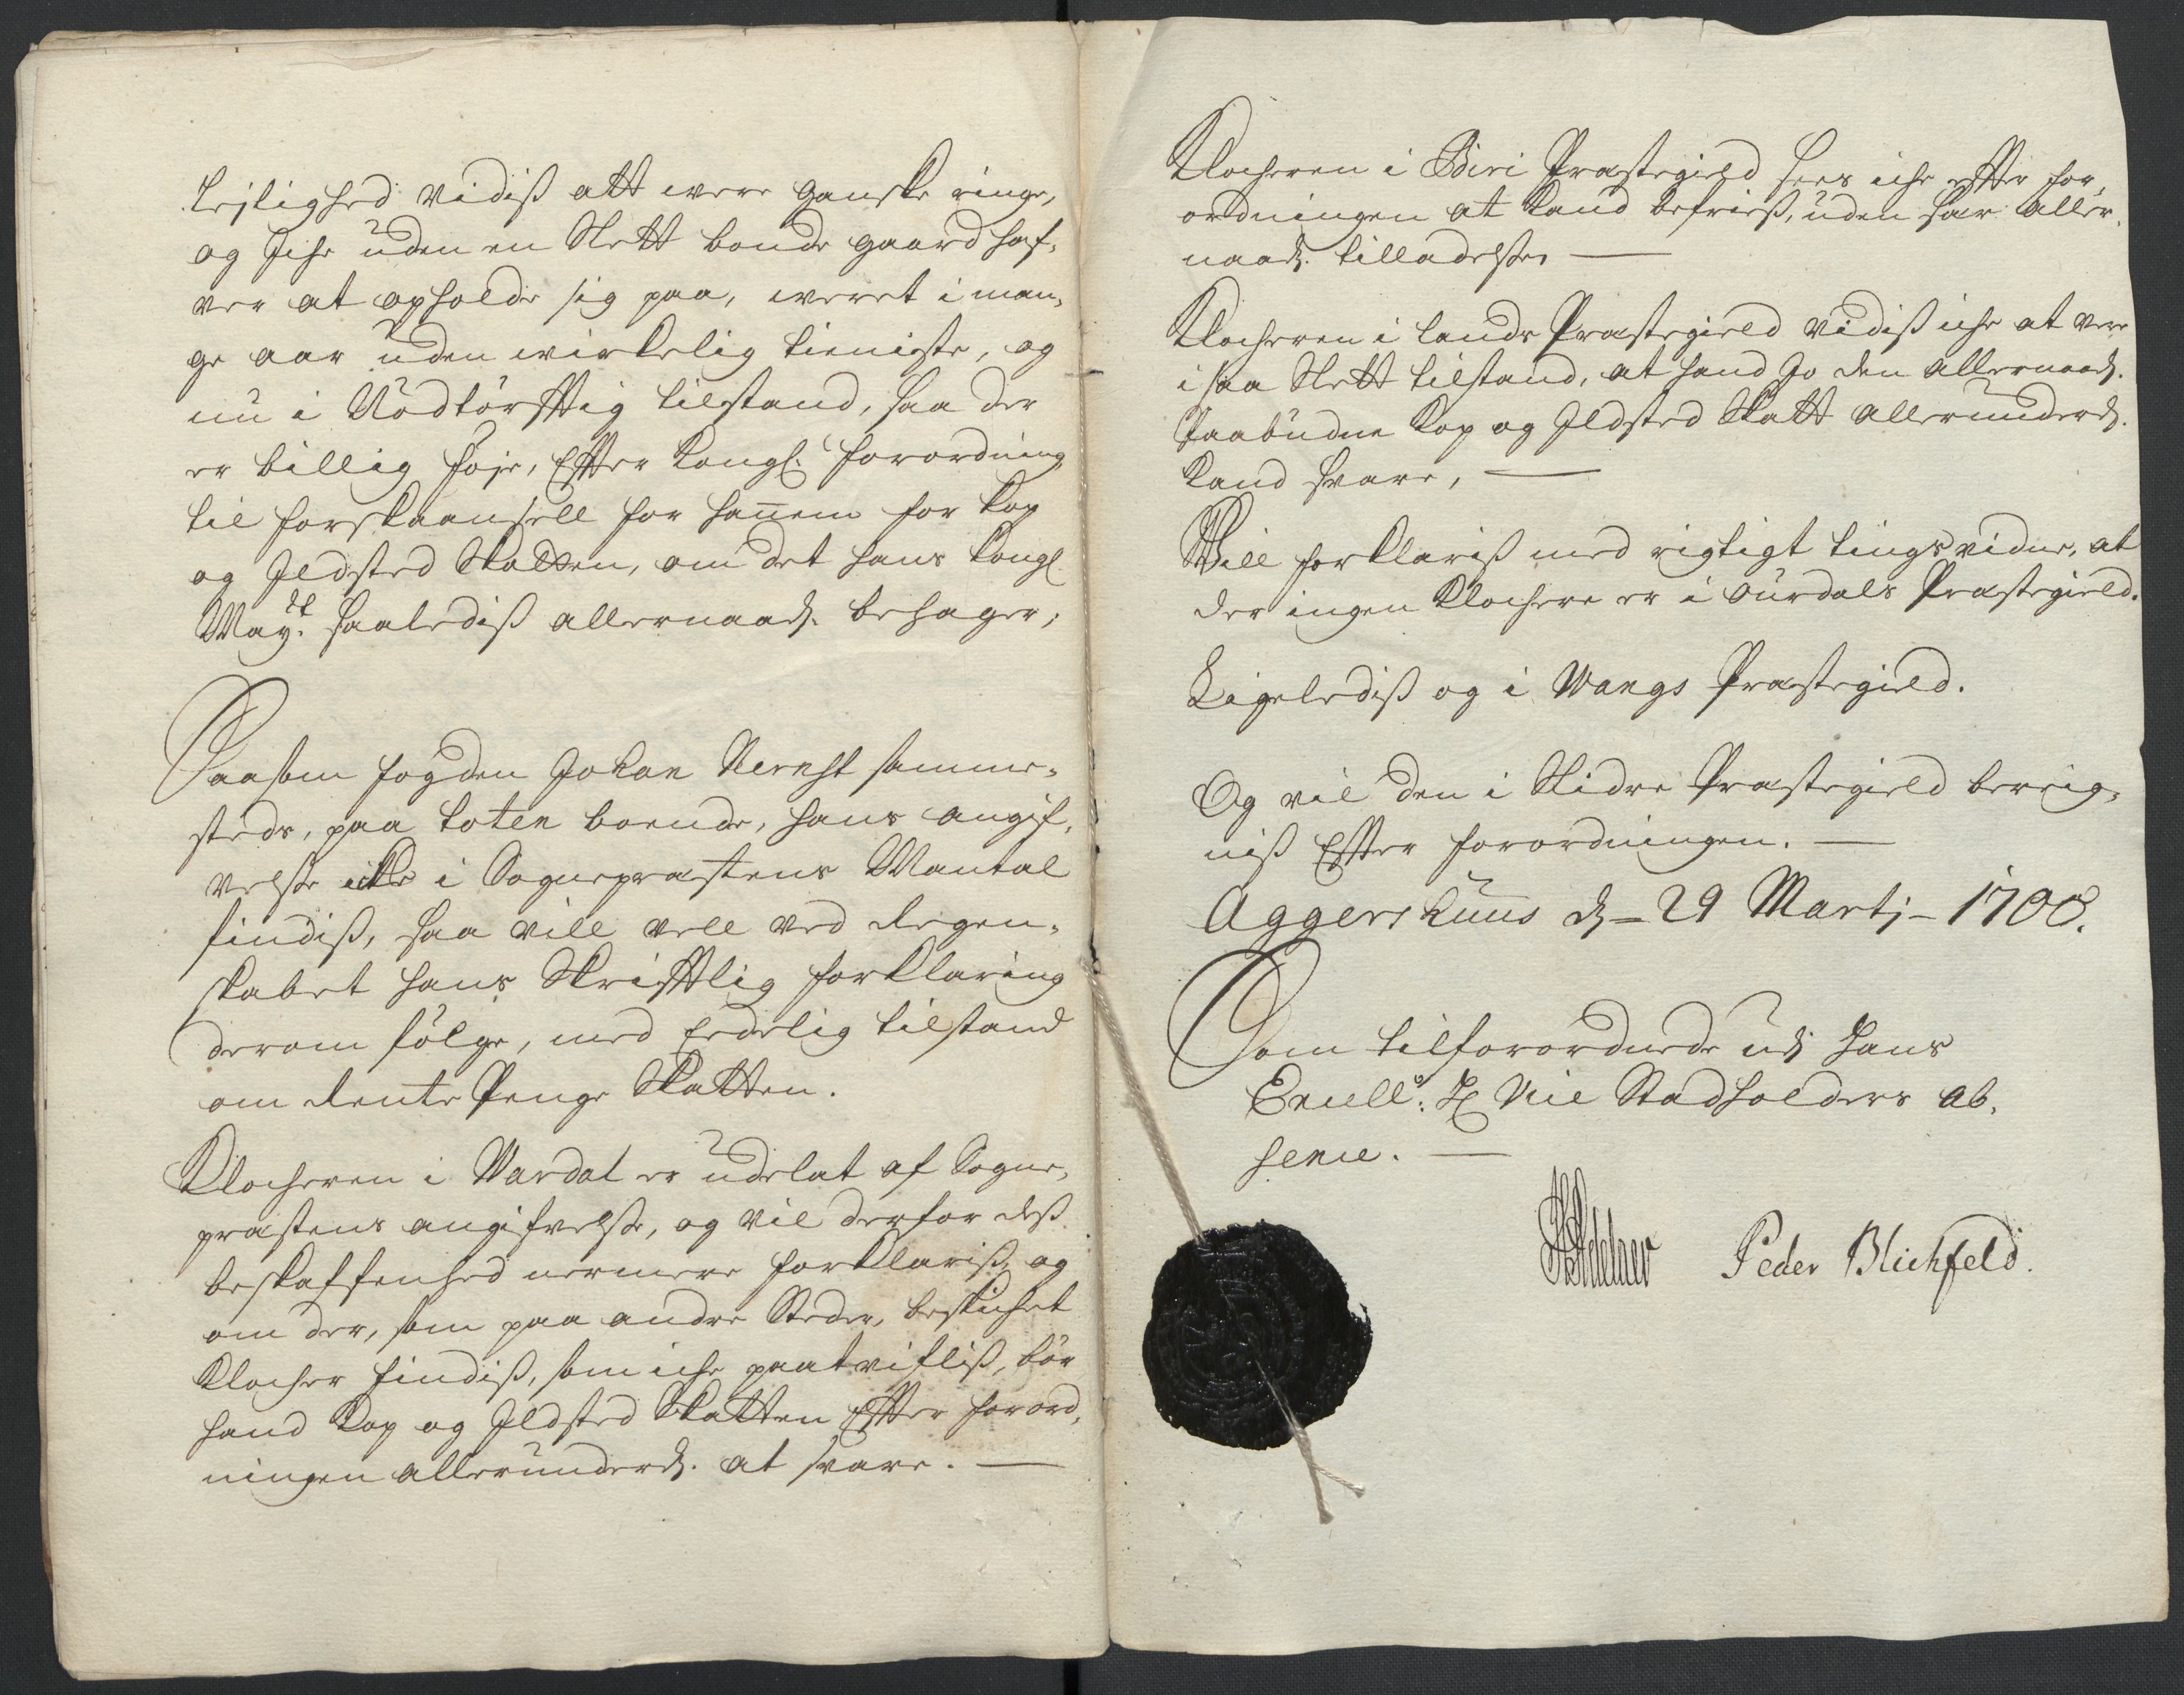 Lejlighed vidiß att were Ganske ringe,
og Iche uden en Slett bonde gaard haf,
ver at opholde sig paa, weret i man,
ge aar uden wirkelig tieniste, og
nu i Nödtörfftig tilstand, saa der
er billig föje, Effter Kongl: forordning
til forskaansell for hannem for Kop
og Ildsted Skatten, om det hans Kongl
May:tt saalediß allernaad. behager;
Saasom fogden Johan Nernst samme,
steds, paa toten boende, hans angif,
velse icke i Sognepræstens Mantal
findiß, saa vill vell ved Regen,
skabet hans Skrifftlig forklaring
derom fölge, med Eedelig tilstand
om Rente Penge Skatten.
Klocheren i Wardal er udelat af Sogne,
præstens angifvelse, og vil derfor deß
beskaffenhed nermere forklariß, og
om der, som paa andre Steder, beskichet
Klocher findiß, som iche paatvifliß, bör
hand Kop og Ildsted Skatten Effter forord,
ningen allerunderd. at svare. —
Klocheren i Biri Præstegield sees iche effter for,
ordningen at kand befrieß, uden sær aller,
naad. tilladelse, —
Klocheren i Lands Præstegield vidiß iche at vere
i saa Slett tilstand, at hand jo den allernaad.
Paabudne Kop og Ildsted Skatt allerunderd.
kand svare, —
Will forklariß med rigtigt tingsvidne, at
der ingen Klochere er i Ourdals Præstegield.
Ligelediß og i Wangs Præstegield.
Og vil den i Slidre Præstegield bereig,
niß Effter forordningen. —
Aggershuus d. 29 Martj - 1708.
Som tilforordnede udj Hans
Excell: Hr Vice Stadholders ab,
sence. —
Peder Blichfeld.